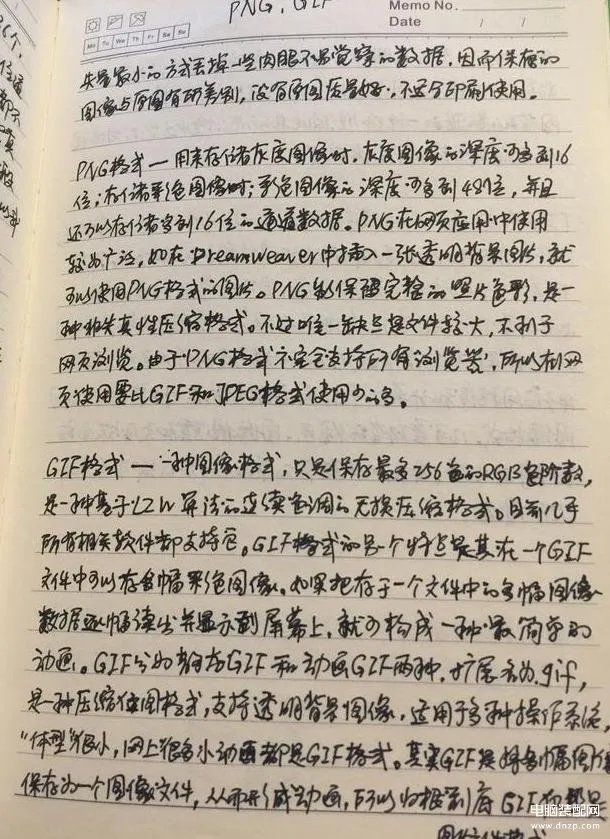 PNG, GIF
Memo No.
Date / /
Mo Tu We Th Fr Sa Su
失量最小的方式丢掉一些肉眼不易觉察的数据,因而保存的
图像与原图有所差别,没有原图质量好,不适合印刷使用。
PNG格式一用来存储灰度图像时,灰度图像的深度可多到16
位;存储彩色图像时;彩色图像的深度可多到48位,并且
还可以存储多到16位的通道数据。PNG在网页应用中使用
较为广泛,如在Dreamweaver中插入一张透明背景图片,就
可以使用PNG格式的图片。PNG能保留完整的照片色彩,是一
种相失真性压缩格式。不过唯一缺点是文件较大,不利于
网页浏览。由于PNG格式不完全支持所有浏览器,所以在网
页使用要比GIF和JPEG格式使用少的多。
GIF格式一一种图像格式,只是保存最多256色的RGB色阶数,
是一种基于LZW算法的连续色调的无损压缩格式。目前几乎
所有相关软件都支持它。GIF格式的另一个特点是其在一个GIF
文件中可以存多幅彩色图像。如果把存于一个文件中的多幅图像
数据逐幅读出并显示到屏幕上,就可构成一种最简单的
动画。GIF分为静态GIF和动画GIF两种,扩展名为.gif,
是一种压缩位图格式,支持透明背景图像,适用于多种操作系统,
"体型"很小,网上很多小动画都是GIF格式。其实GIF是将多幅图像
保存为一个图像文件,从而形成动画,所以归根到底GIF
电脑装配网
www.dnzp.com